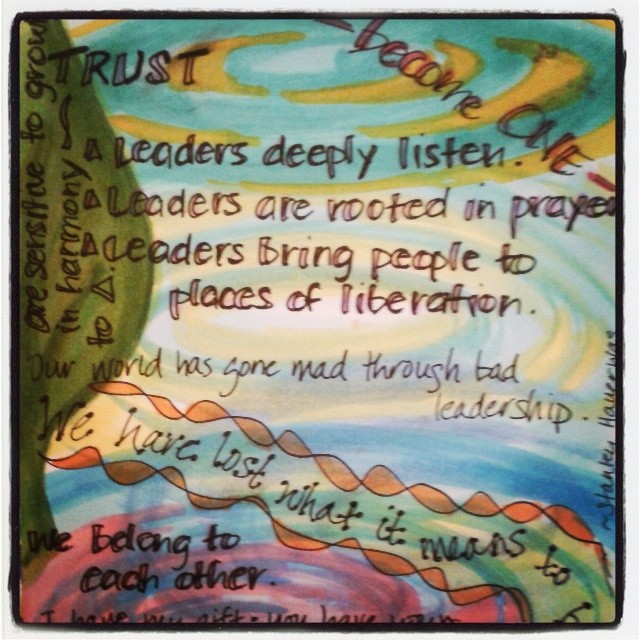 TRUST
- become ONE -
Leaders deeply listen.
Leaders are rooted in prayer
Leaders Bring people to
places of liberation.
are sensitive to grow
in harmony
to Δ.
Our world has gone mad through bad
leadership.
~Stanley Hauerwas
We have lost what it means to b
We Belong to
each other.
I have my gift. you have your